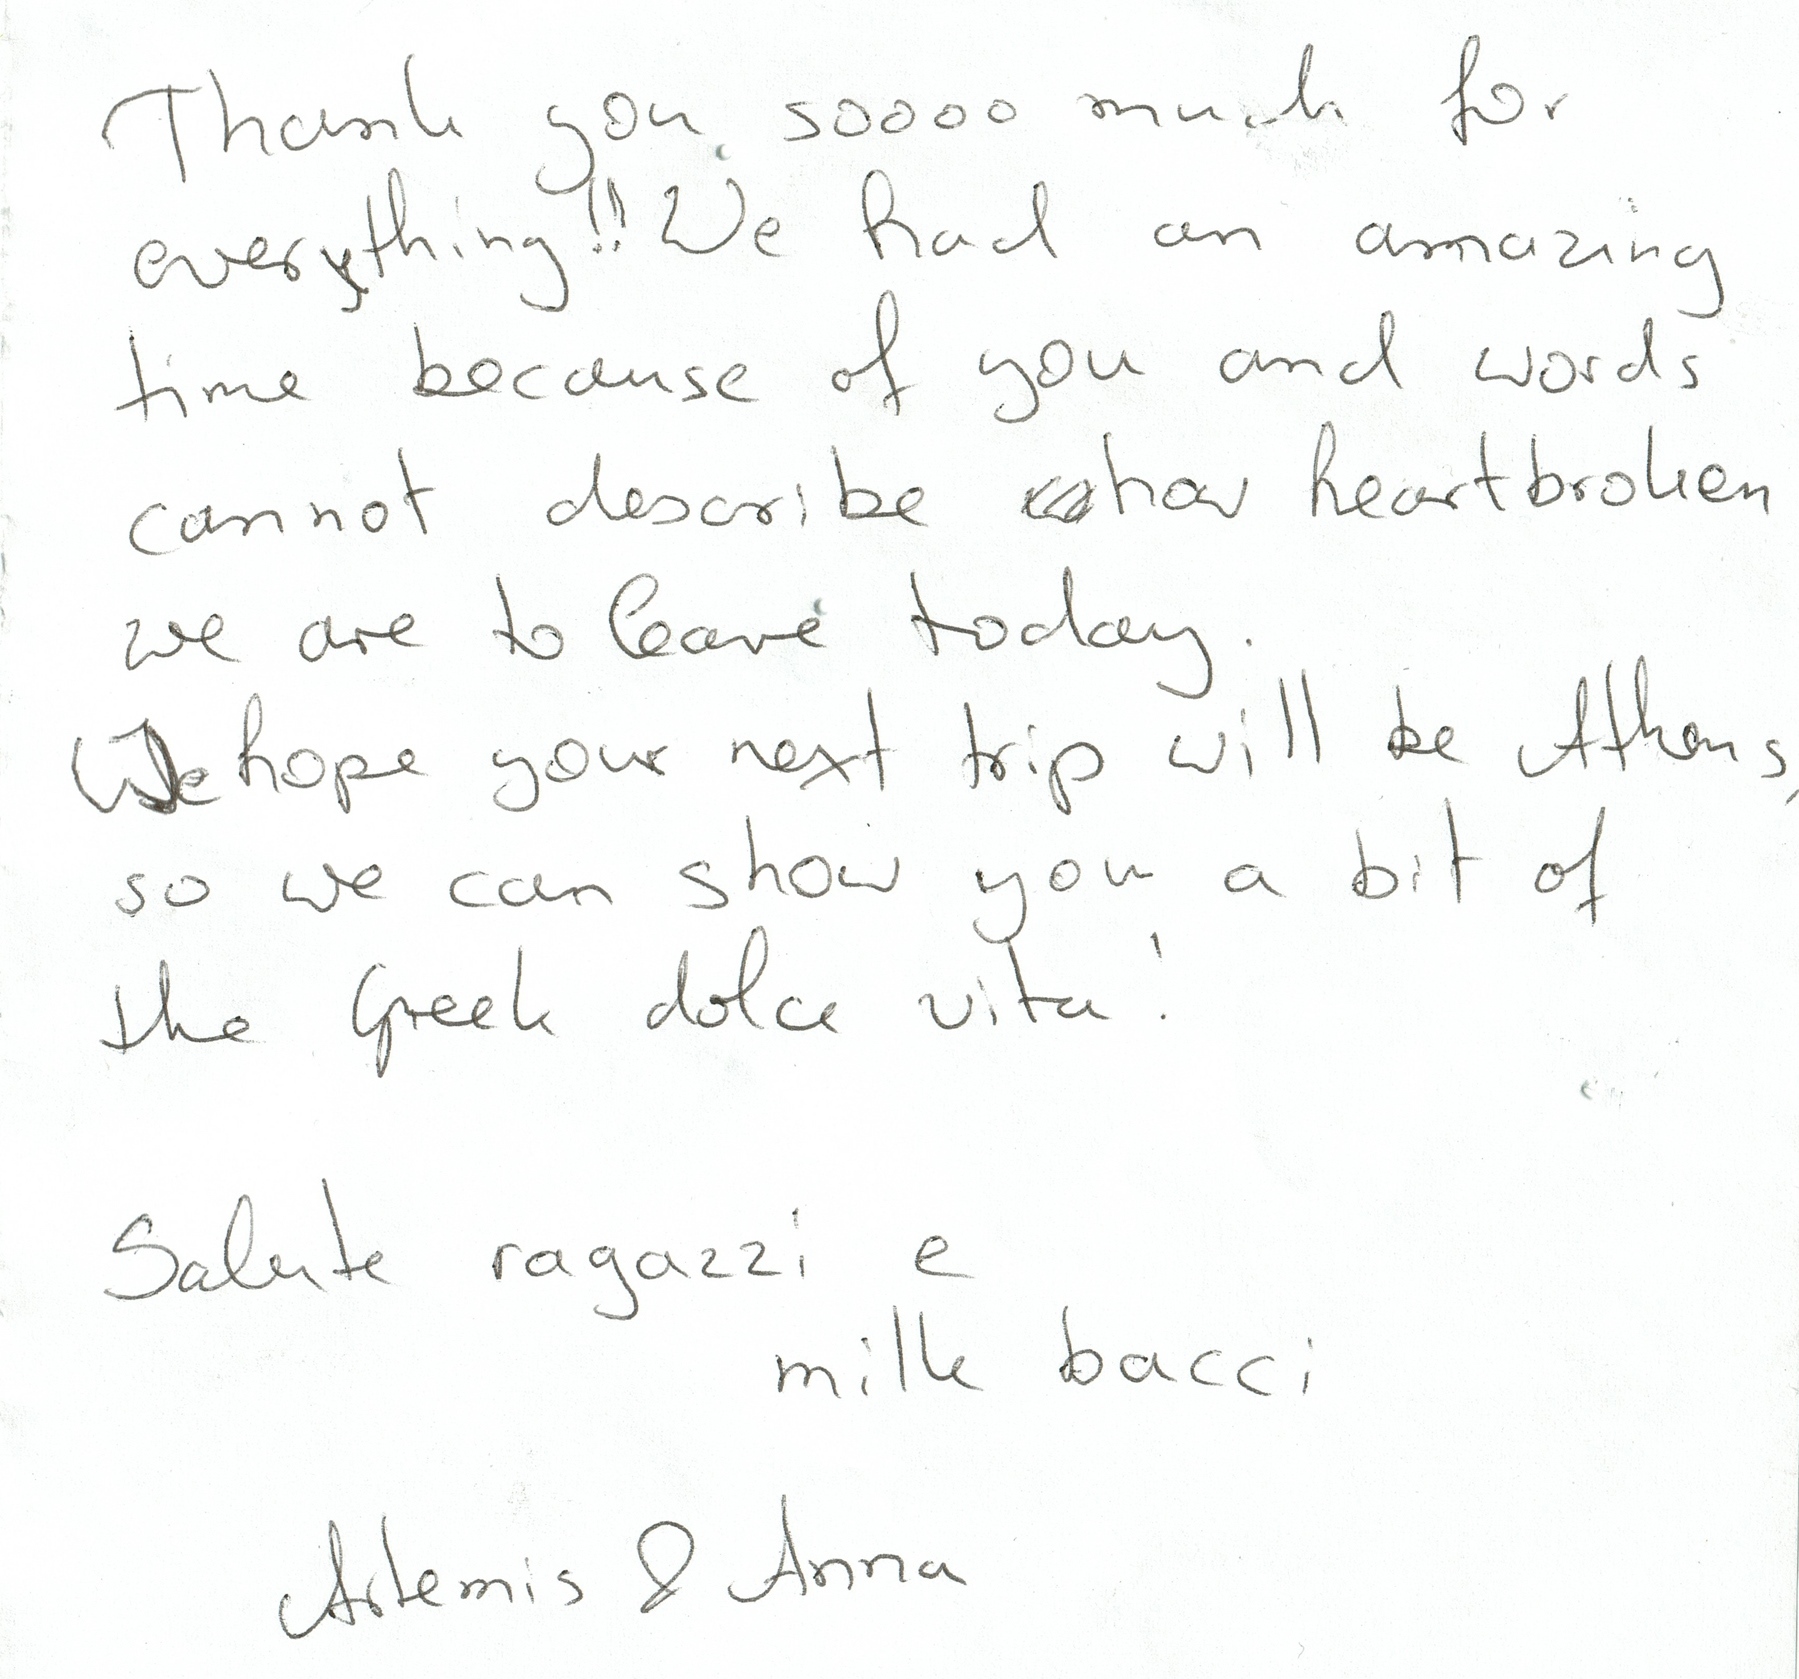 Thank you soooo much for
everything!! We had an amazing
time because of you and words
cannot describe how heartbroken
we are to leave today.
We hope your next trip will be Athens,
so we can show you a bit of
the Greek dolce vita!
Salute ragazzi e
mille bacci
Artemis & Anna